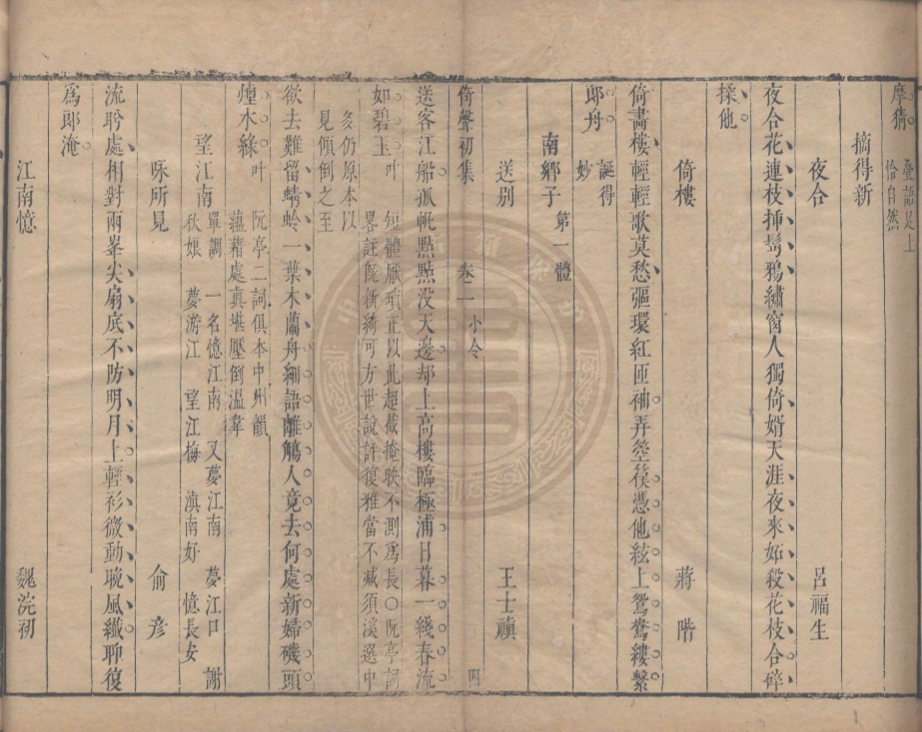 摩猜　疊語足上
恰自然
摘得新
夜合　呂福生
夜合花連枝揷髩鴉繡窗人獨倚婿天涯夜來妬殺花枝合碎
揉他
倚樓　蔣階
倚畵樓輕輕歌莫愁彄環紅匝袖弄箜篌憑他絃上鴛鴦縷繫
郎舟　誕得
妙
南鄉子　第一體
送别　王士禛
倚聲初集　卷二　小令　四
送客江船孤帆點點没天邊却上高樓臨極浦日暮一綫春流
如碧玉　叶　短體厭瑣正以此超截掩映不測爲長〇阮亭詞
畧註旣新綺可方世說許復雅當不減須溪選中
多仍原本以
見傾倒之至
欲去難留蜻蛉一葉木蘭舟細語離觴人竟去何處新婦磯頭
煙水綠　叶　阮亭二詞俱本中州韻
蘊藉處眞堪壓倒溫韋
望江南　單調　一名憶江南　又夢江南　夢江口　謝
秋娘　夢游江　望江梅　滇南好　憶長安
咏所見　俞彥
流盻處相對兩峯尖扇底不防明月上輕衫微動晚風纖聊復
爲郎淹
江南憶　魏浣初